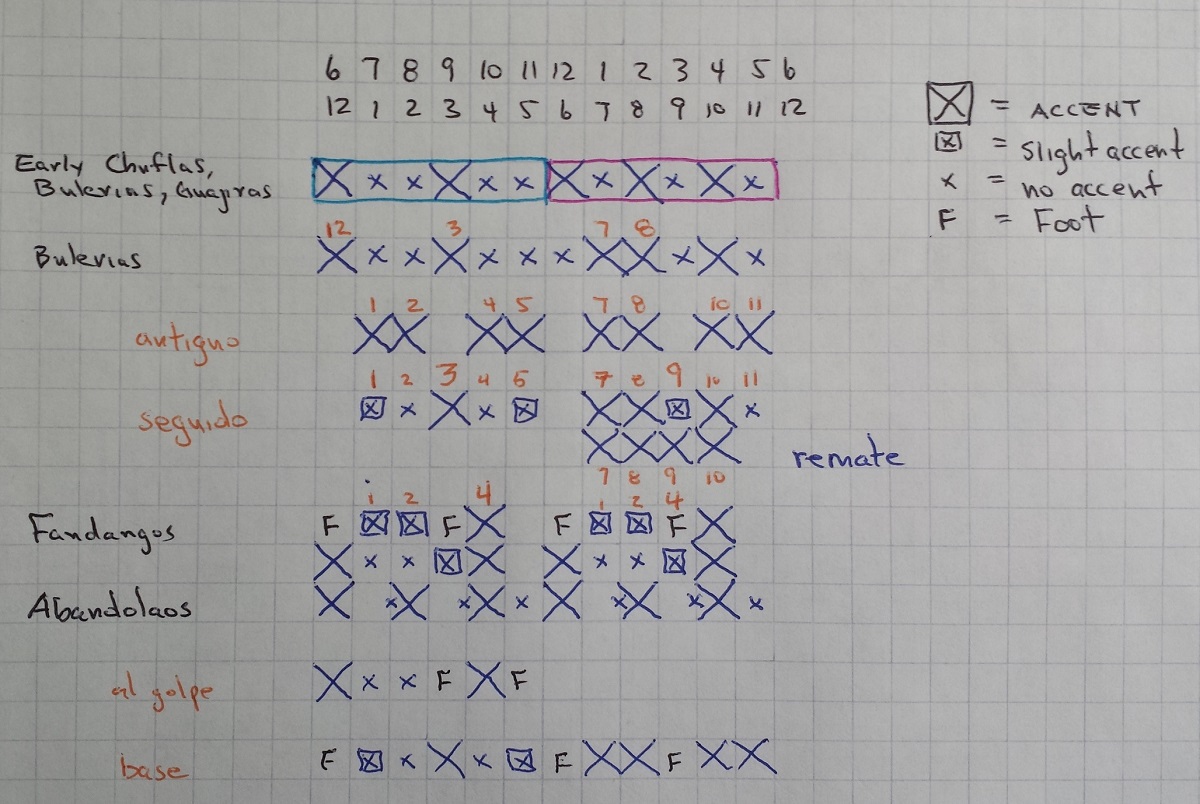 6 7 8 9 10 11 12 1 2 3 4 5 6
12 1 2 3 4 5 6 7 8 9 10 11 12
X = ACCENT
x = Slight accent
x = no accent
F = Foot
Early Chuflas,
Bulerias, Guajiras X x x X x x X x X x X x
12 3 7 8
Bulerias X x x X x x x X X x X x
1 2 4 5 7 8 10 11
antiguo X X X X X X X X
1 2 3 4 5 7 8 9 10 11
seguido x x X x x X X x X x
X X X X remate
7 8 9 10
1 2 4 1 2 4
Fandangos F x x F X F x x F X
X x x x X X x x x X
Abandolaos X x X x X x X x X x X x
al golpe X x x F X F
base F x x X x x F X X F X X